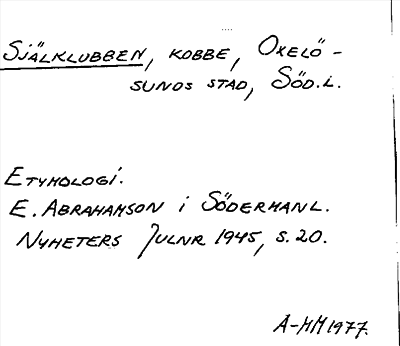 SJÄLKLUBBEN, KOBBE, OXELÖ-
SUNDS STAD, SÖD.L.
ETYMOLOGI.
E. ABRAHAMSON I SÖDERMANL.
NYHETERS JULNR 1945, S. 20.
A-MM 1977.